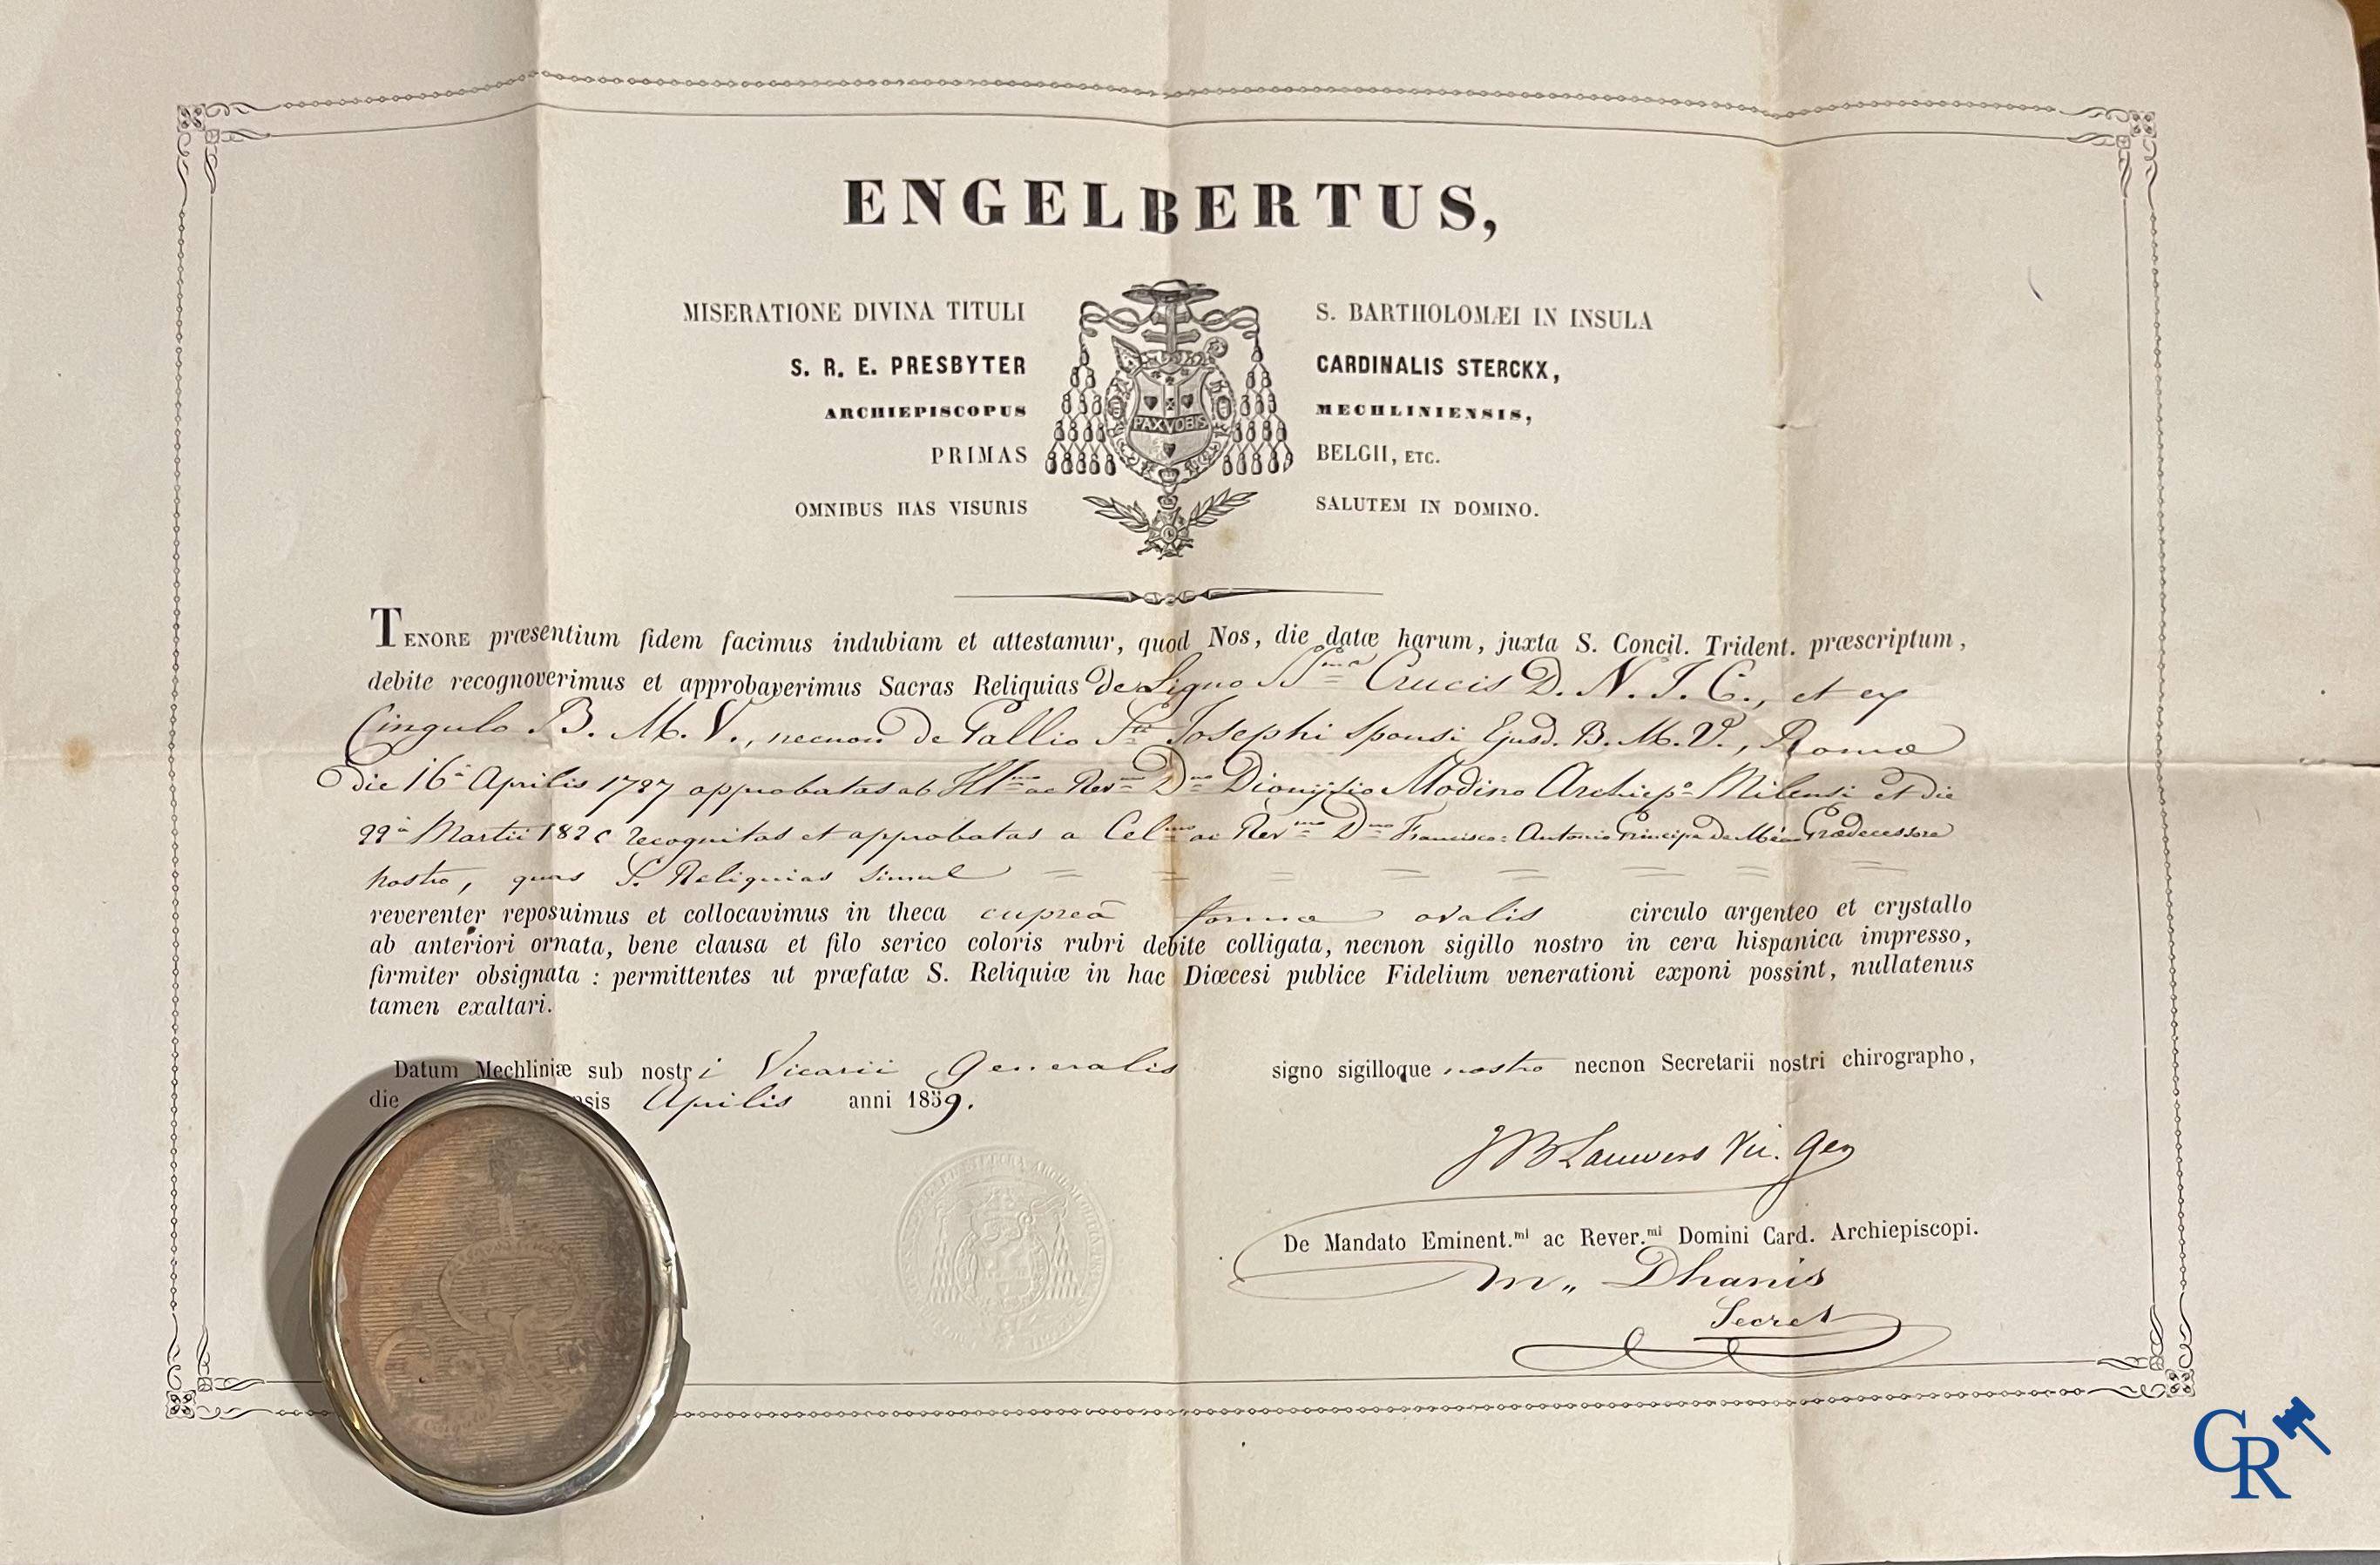 ENGELBERTUS,
MISERATIONE DIVINA TITULI S. BARTHOLOMÆI IN INSULA
S. R. E. PRESBYTER CARDINALIS STERCKX,
ARCHIEPISCOPUS MECHLINIENSIS,
PAX VOBIS
PRIMAS BELGII, ETC.
OMNIBUS HAS VISURIS SALUTEM IN DOMINO.
TENORE præsentium fidem facimus indubiam et attestamur, quod Nos, die datæ harum, juxta S. Concil. Trident. præscriptum,
debite recognoverimus et approbaverimus Sacras Reliquias de Ligno SSmæ Crucis D. N. J. C., et ex
Cingulo B. M. V., necnon de Pallio Sti Josephi Sponsi Ejusd. B. M. V., Romæ
die 16â Aprilis 1787 approbatas ab Illmo ac Revmo Dno Dionysio Modino Archiepo Milensi et die
22â Martii recognitas et approbatas a Celmo ac Revmo Dno Francisco: Antonio Principe De Méan Prædecessore
nostro, quas S. Reliquias simul = = = = = = = =
reverenter reposuimus et collocavimus in theca cupreâ formæ ovalis circulo argenteo et crystallo
ab anteriori ornata, bene clausa et filo serico coloris rubri debite colligata, necnon sigillo nostro in cera hispanica impresso,
firmiter obsignata : permittentes ut præfatæ S. Reliquiæ in hac Diœcesi publice Fidelium venerationi exponi possint, nullatenus
tamen exaltari.
Datum Mechliniæ sub nostri Vicarii Generalis signo sigilloque nostro necnon Secretarii nostri chirographo,
die nsis Aprilis anni 1859.
J B Lauwers Vic. Gen
De Mandato Eminent.mi ac Rever.mi Domini Card. Archiepiscopi.
m,, Dhanis
Secret
CR